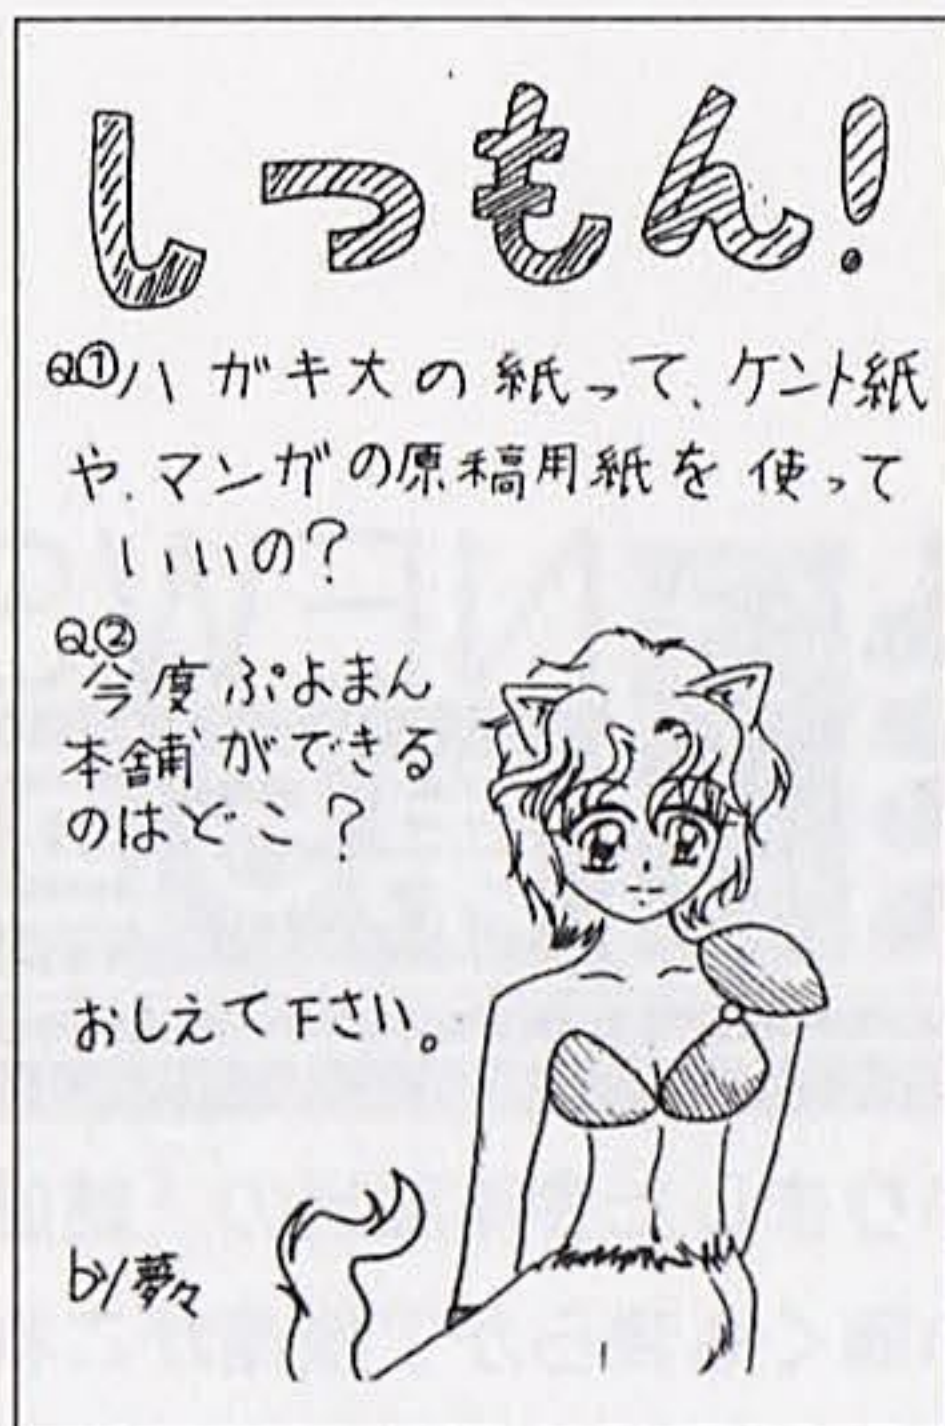 しつもん!
Q①ハガキ大の紙って、ケント紙
や、マンガの原稿用紙を使って
いいの?
Q②
今度ぷよまん
本舗ができる
のはどこ?
おしえて下さい。
by夢々